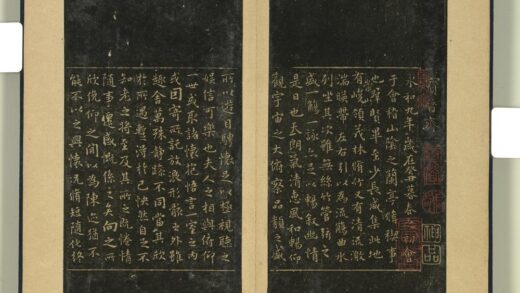 永和九年歲在癸丑暮春之初會
于會稽山陰之蘭亭脩稧事
也群賢畢至少長咸集此地
有峻領茂林脩竹又有清流激
湍暎帶左右引以為流觴曲水
列坐其次雖無絲竹管弦之
盛一觴一詠亦足以暢敘幽情
是日也天朗氣清惠風和暢仰
觀宇宙之大俯察品類之盛
所以遊目騁懷足以極視聽之
娛信可樂也夫人之相與俯仰
一世或取諸懷抱悟言一室之內
或因寄所託放浪形骸之外雖
趣舍萬殊靜躁不同當其欣
於所遇暫得於己怏然自足不
知老之將至及其所之既惓情
隨事遷感慨係之矣向之所
欣俛仰之間以為陳迹猶不
能不以之興懷況脩短隨化終